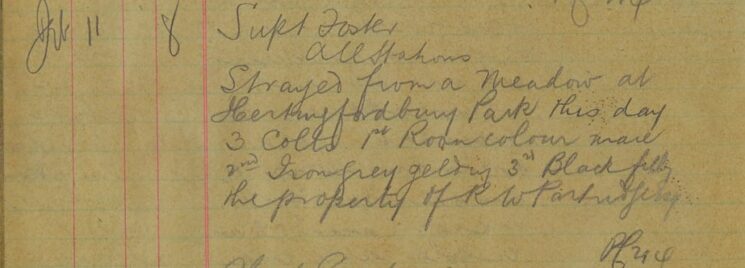 Feb 11 8 Supt Foster
All Stations
Strayed from a Meadow at
Hertingfordbury Park this day
3 Colts 1st Roan colour mare
2nd Iron grey gelding 3rd Black filly
the property of R W Partridge Esq